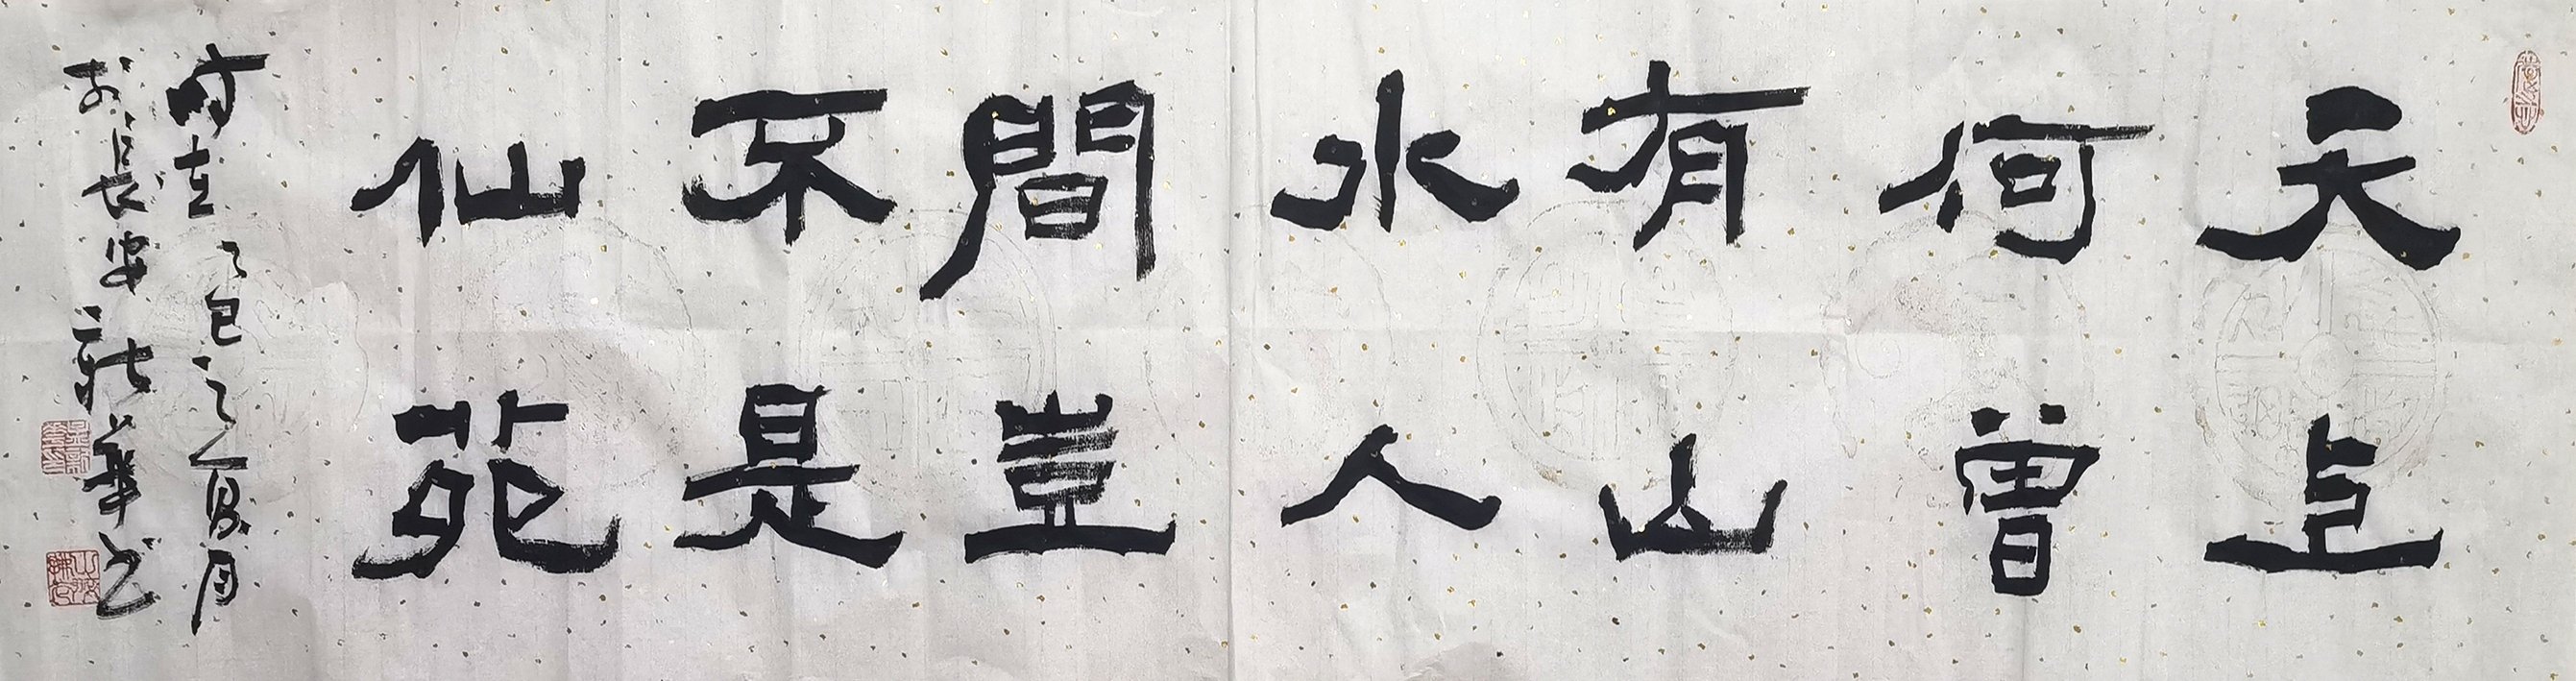 天上
何曾
有山
水人
間豈
不是
仙苑
時在乙巳之夏月
於長安新華书